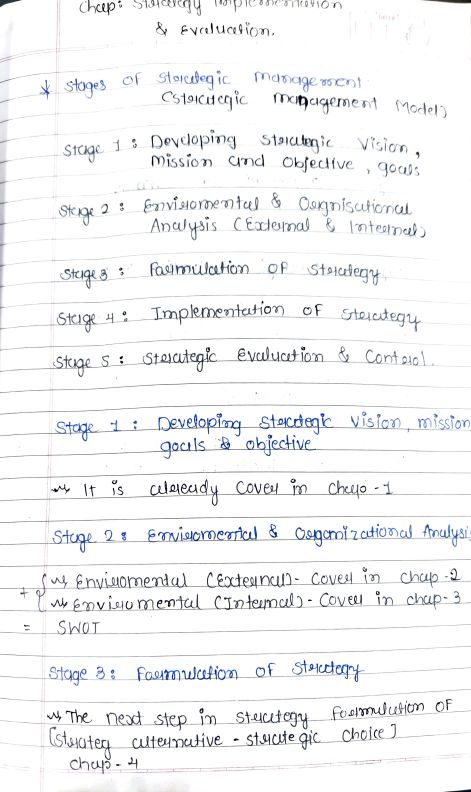 Chap: Strategy Implementation
& Evaluation.
* Stages of Strategic management
(Strategic management Model)
Stage 1 : Developing Strategic Vision,
Mission and Objective, goals
Stage 2 : Enviromental & Orgnisational
Analysis (External & Internal)
Stage 3 : Formulation of Strategy
Stage 4 : Implementation of Strategy
Stage 5 : Strategic Evaluation & Control.
Stage 1 : Developing Strategic Vision, mission
goals & objective
It is already Cover in Chap - 1
Stage 2 : Enviromental & Organizational Analysis
+ { Enviromental (External) - Cover in chap - 2
Enviromental (Internal) - Cover in chap - 3
= SWOT
Stage 3 : Formulation of Strategy
The next step in Strategy Formulation of
[Strateg alternative - strategic choice]
chap - 4